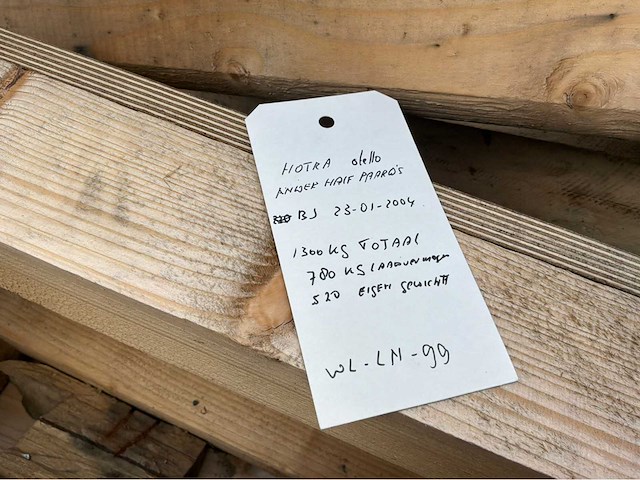 HOTRA otello
ANDER HALF PAARD'S
BJ 23-01-2004
1300 KG TOTAAL
780 KG LAADVERMOGEN
520 EIGEN GEWICHT
WL-LN-99